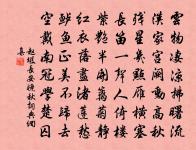 雲物凄涼拂曙流
漢家宮闕動高秋
殘星幾點雁橫塞
長笛一聲人倚樓
紫艷半開籬菊靜
紅衣落盡渚蓮愁
鱸魚正美不歸去
空戴南冠學楚囚
趙嘏長安晚秋詞典網